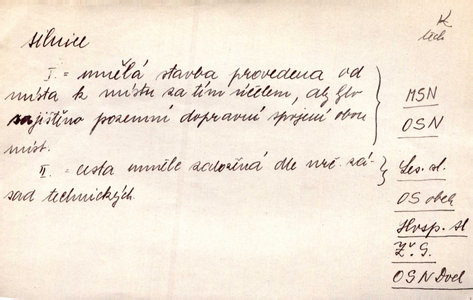 silnice
I. = umělá stavba provedena od
místa k místu za tím účelem, aby bylo
zajištěno pozemní dopravní spojení obou
míst.
II. = cesta uměle založená dle urč. zá-
sad technických.
K
tech
MSN
OSN
Les. sl.
OS obch
Hosp. sl
Z. G.
OSN Dod